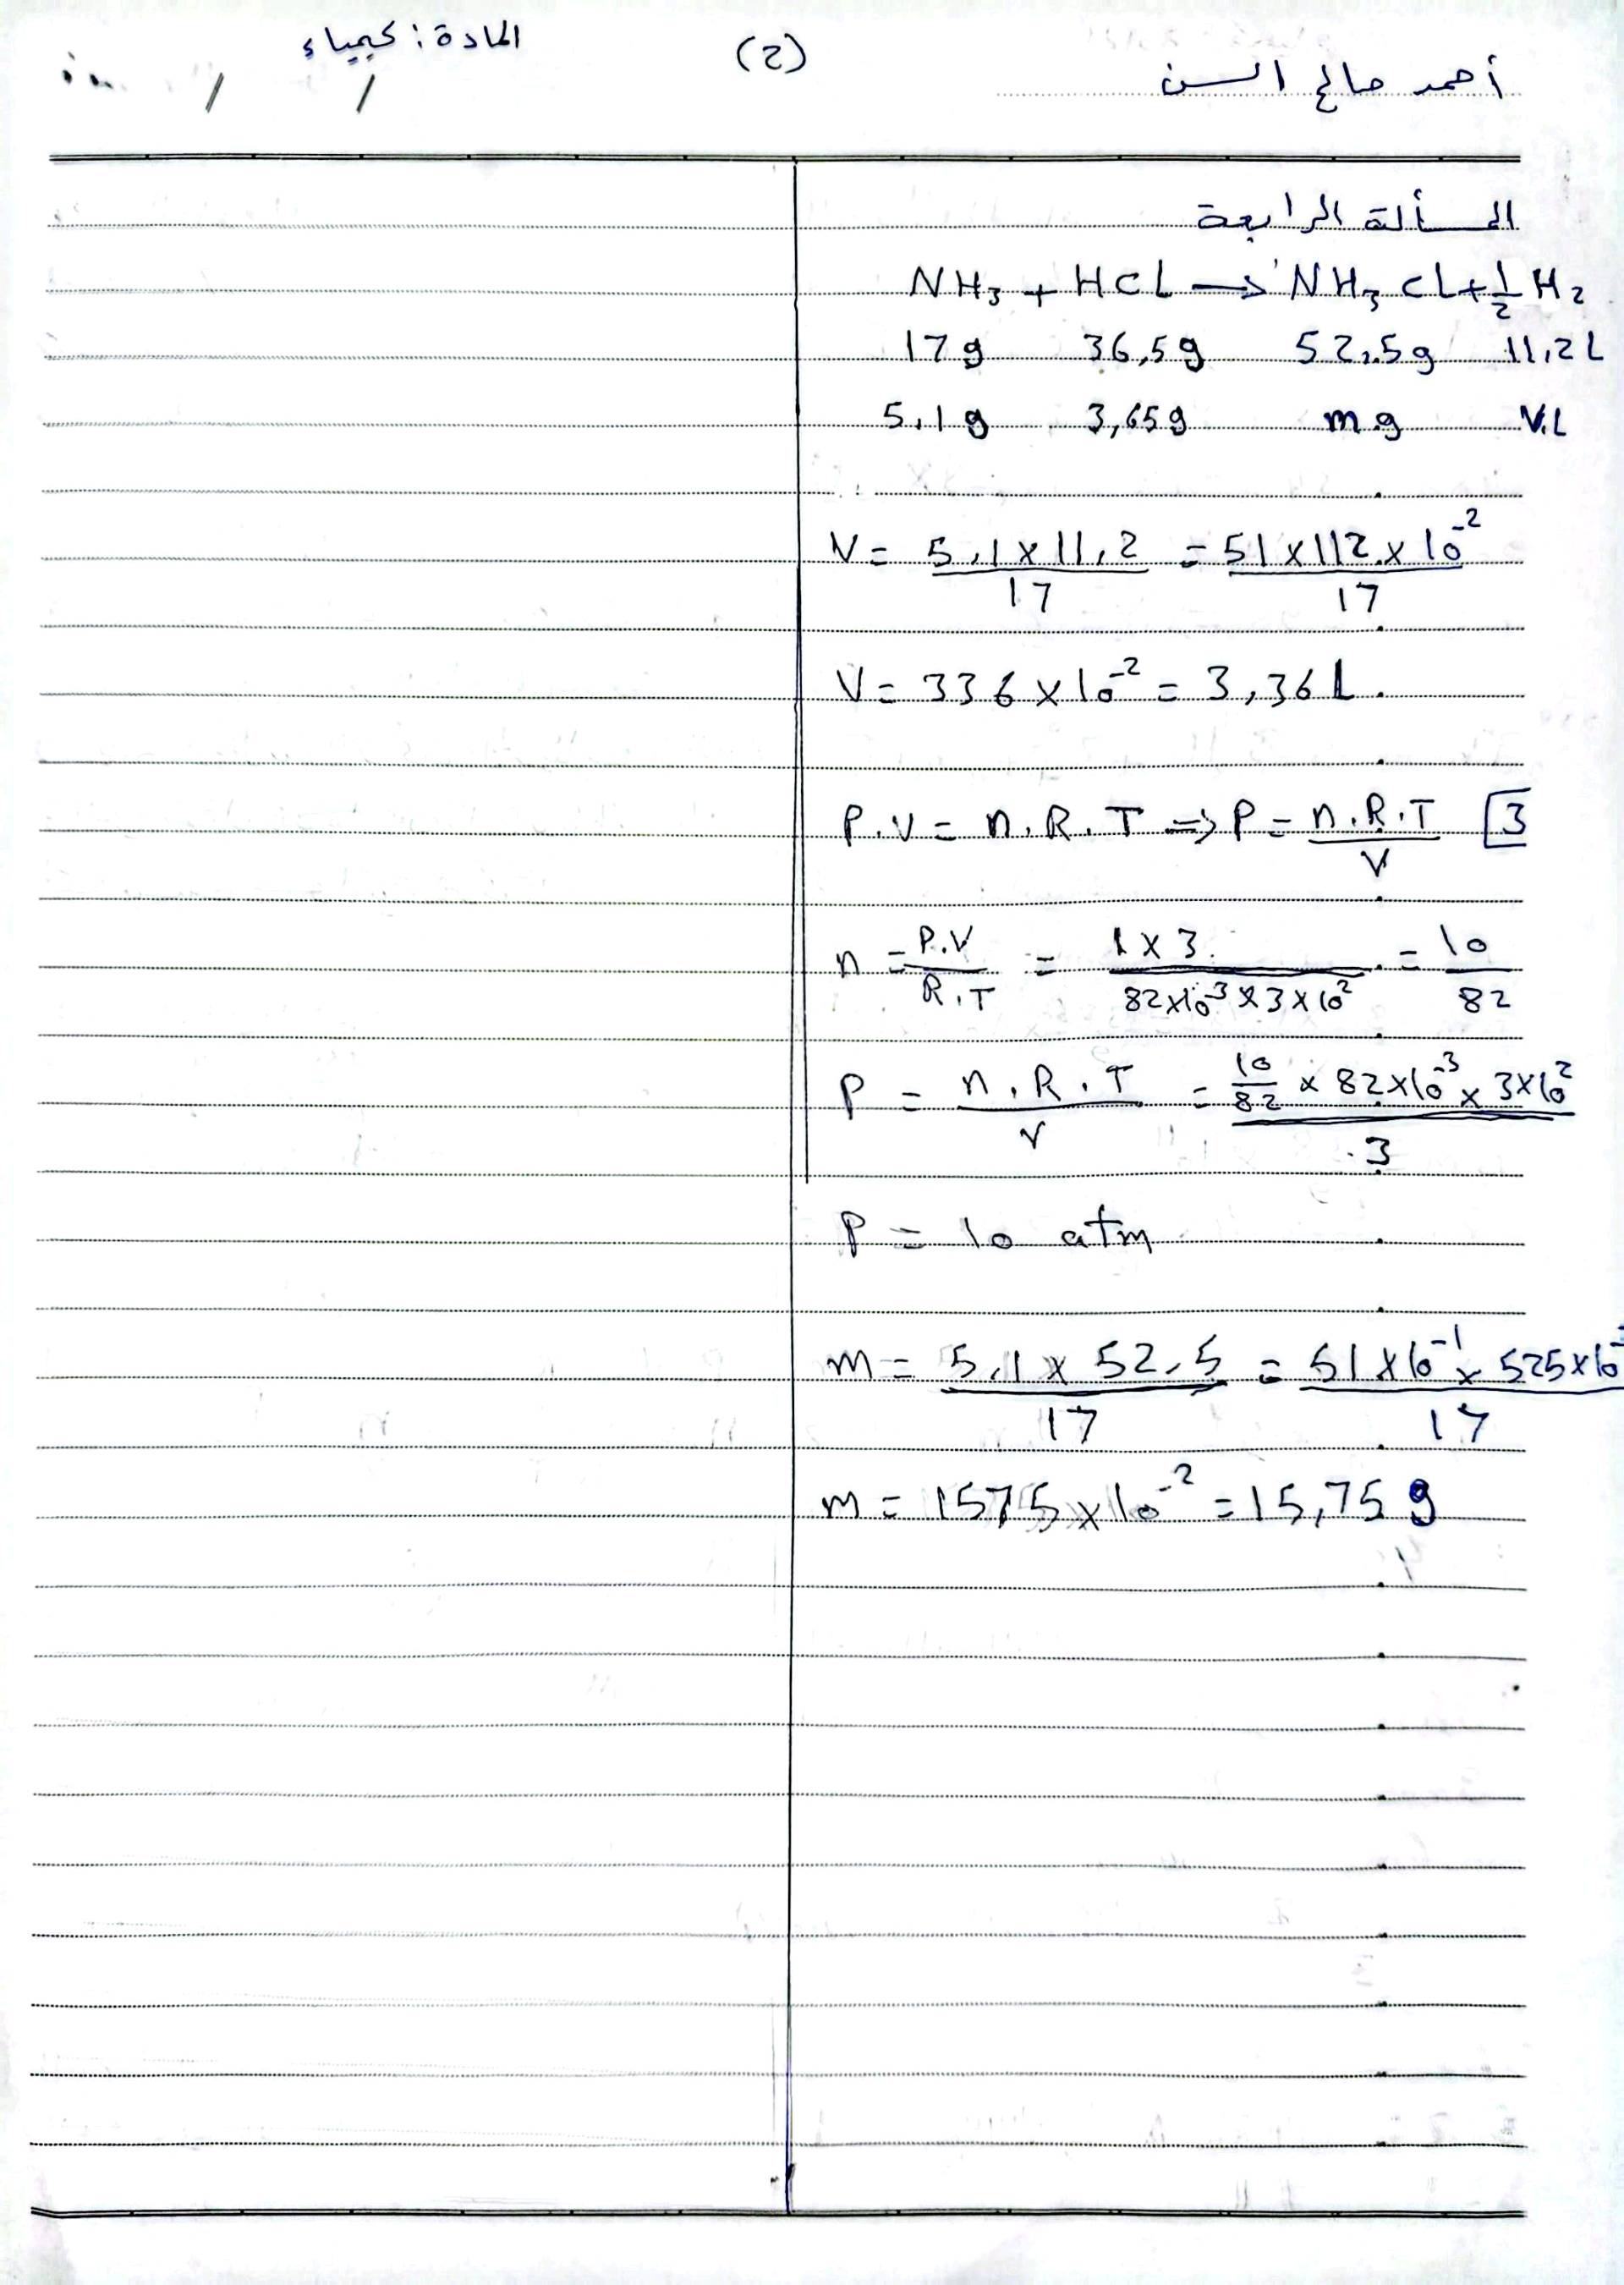 أحمد صالح السن
(2)
المادة: كيمياء
/ /
المسألة الرابعة
NH₃ + HCL → NH₃CL + ½ H₂
17g 36,5g 52,5g 11,2L
5,1g 3,65g mg V.L
V = 5,1 × 11,2 / 17 = 51 × 112 × 10⁻² / 17
V = 336 × 10⁻² = 3,36 L
P.V = n.R.T ⇒ P = n.R.T / V 3
n = P.V / R.T = 1 × 3 / 82×10⁻³ × 3×10² = 10 / 82
P = n.R.T / V = 10/82 × 82×10⁻³ × 3×10² / .3
P = 10 atm
m = 5,1 × 52,5 / 17 = 51×10⁻¹ × 525×10⁻ / 17
m = 1575×10⁻² = 15,75 g